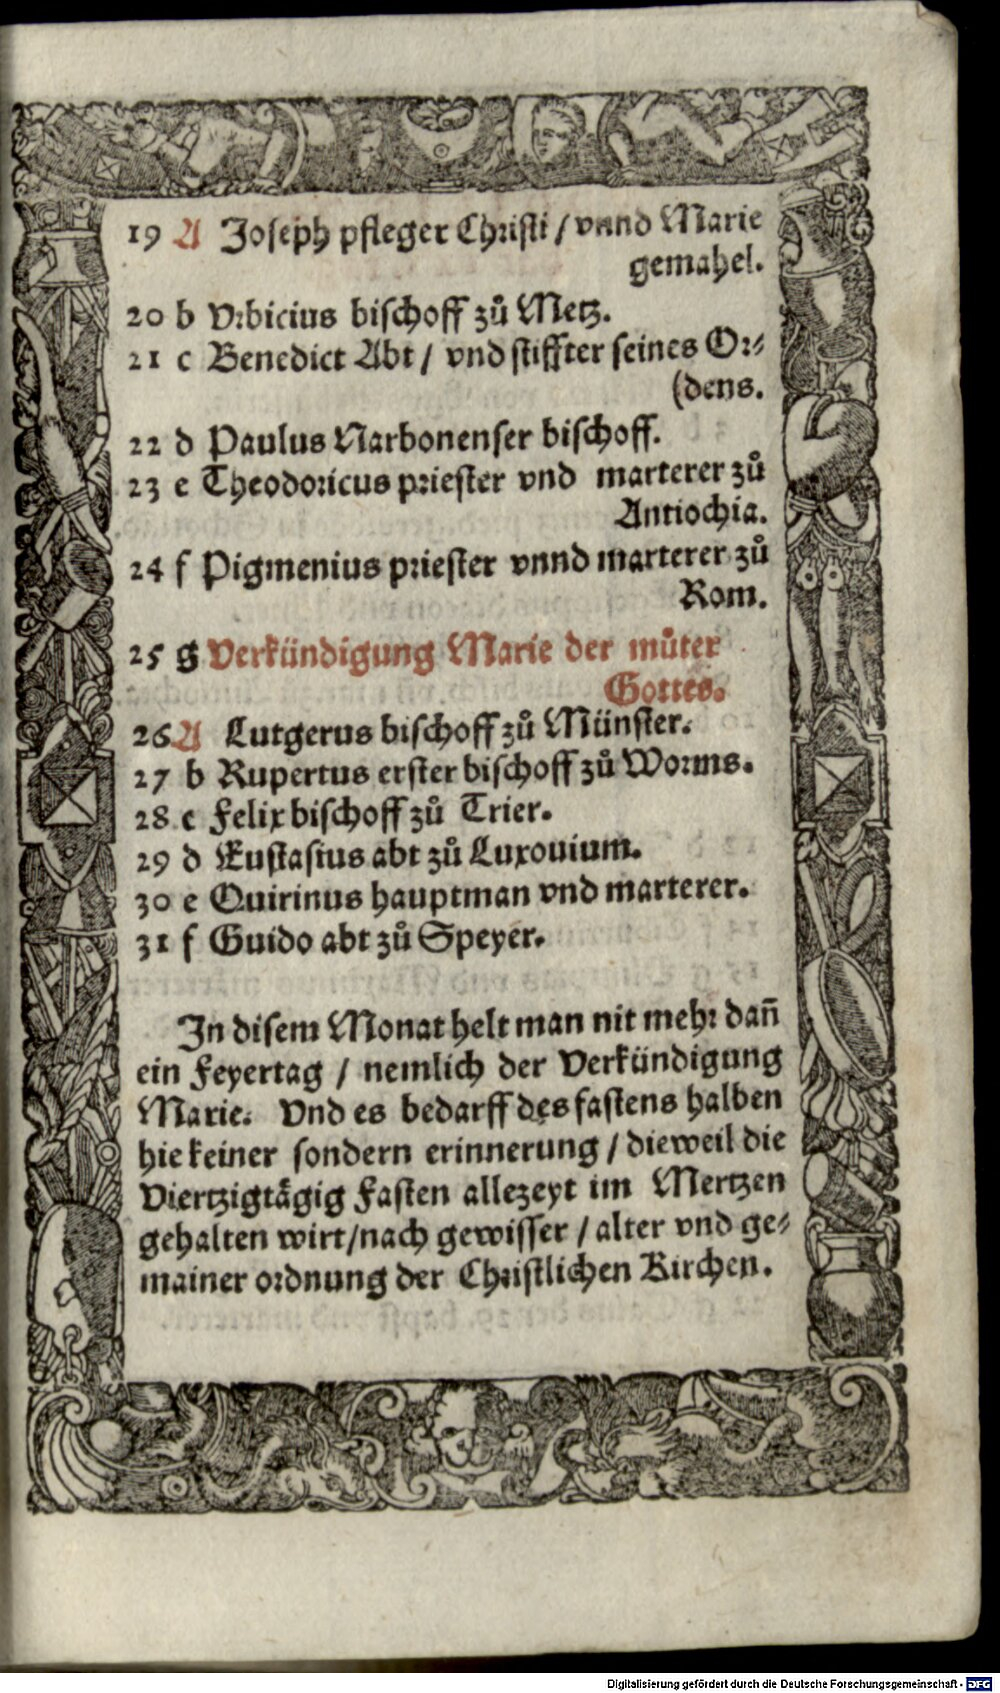 19 A Joseph pfleger Christi / vnnd Marie
gemahel.
20 b Vrbicius bischoff zů Metz.
21 c Benedict Abt / vnd stiffter seines Or⸗
(dens.
22 d Paulus Narbonenser bischoff.
23 e Theodoricus priester vnd marterer zů
Antiochia.
24 f Pigmenius priester vnnd marterer zů
Rom.
25 g Verkündigung Marie der můter
Gottes.
26 A Lutgerus bischoff zů Münster.
27 b Rupertus erster bischoff zů Worms.
28 c Felix bischoff zů Trier.
29 d Eustasius abt zů Luxouium.
30 e Quirinus hauptman vnd marterer.
31 f Guido abt zů Speyer.
In disem Monat helt man nit mehr dañ
ein Feyertag / nemlich der Verkündigung
Marie. Vnd es bedarff des fastens halben
hie keiner sondern erinnerung / dieweil die
Viertzigtägig Fasten allezeyt im Mertzen
gehalten wirt / nach gewisser / alter vnd ge⸗
mainer ordnung der Christlichen Kirchen.
Digitalisierung gefördert durch die Deutsche Forschungsgemeinschaft - DFG